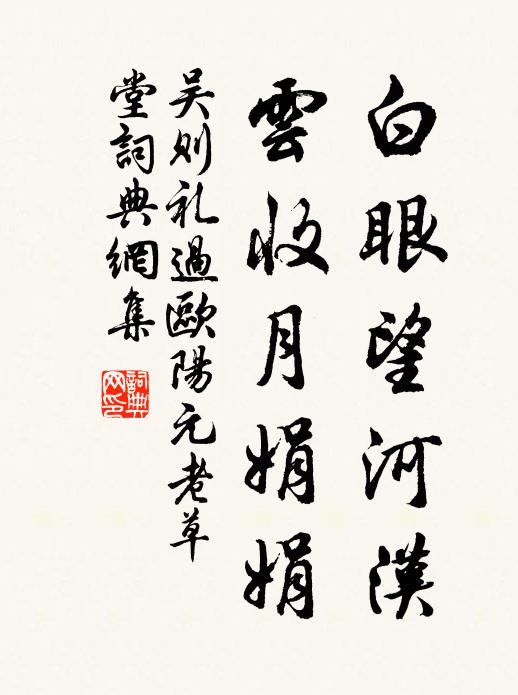 白眼望河漢
雲收月娟娟
吴則礼過歐陽元老草
堂詞典網集
詞典网印